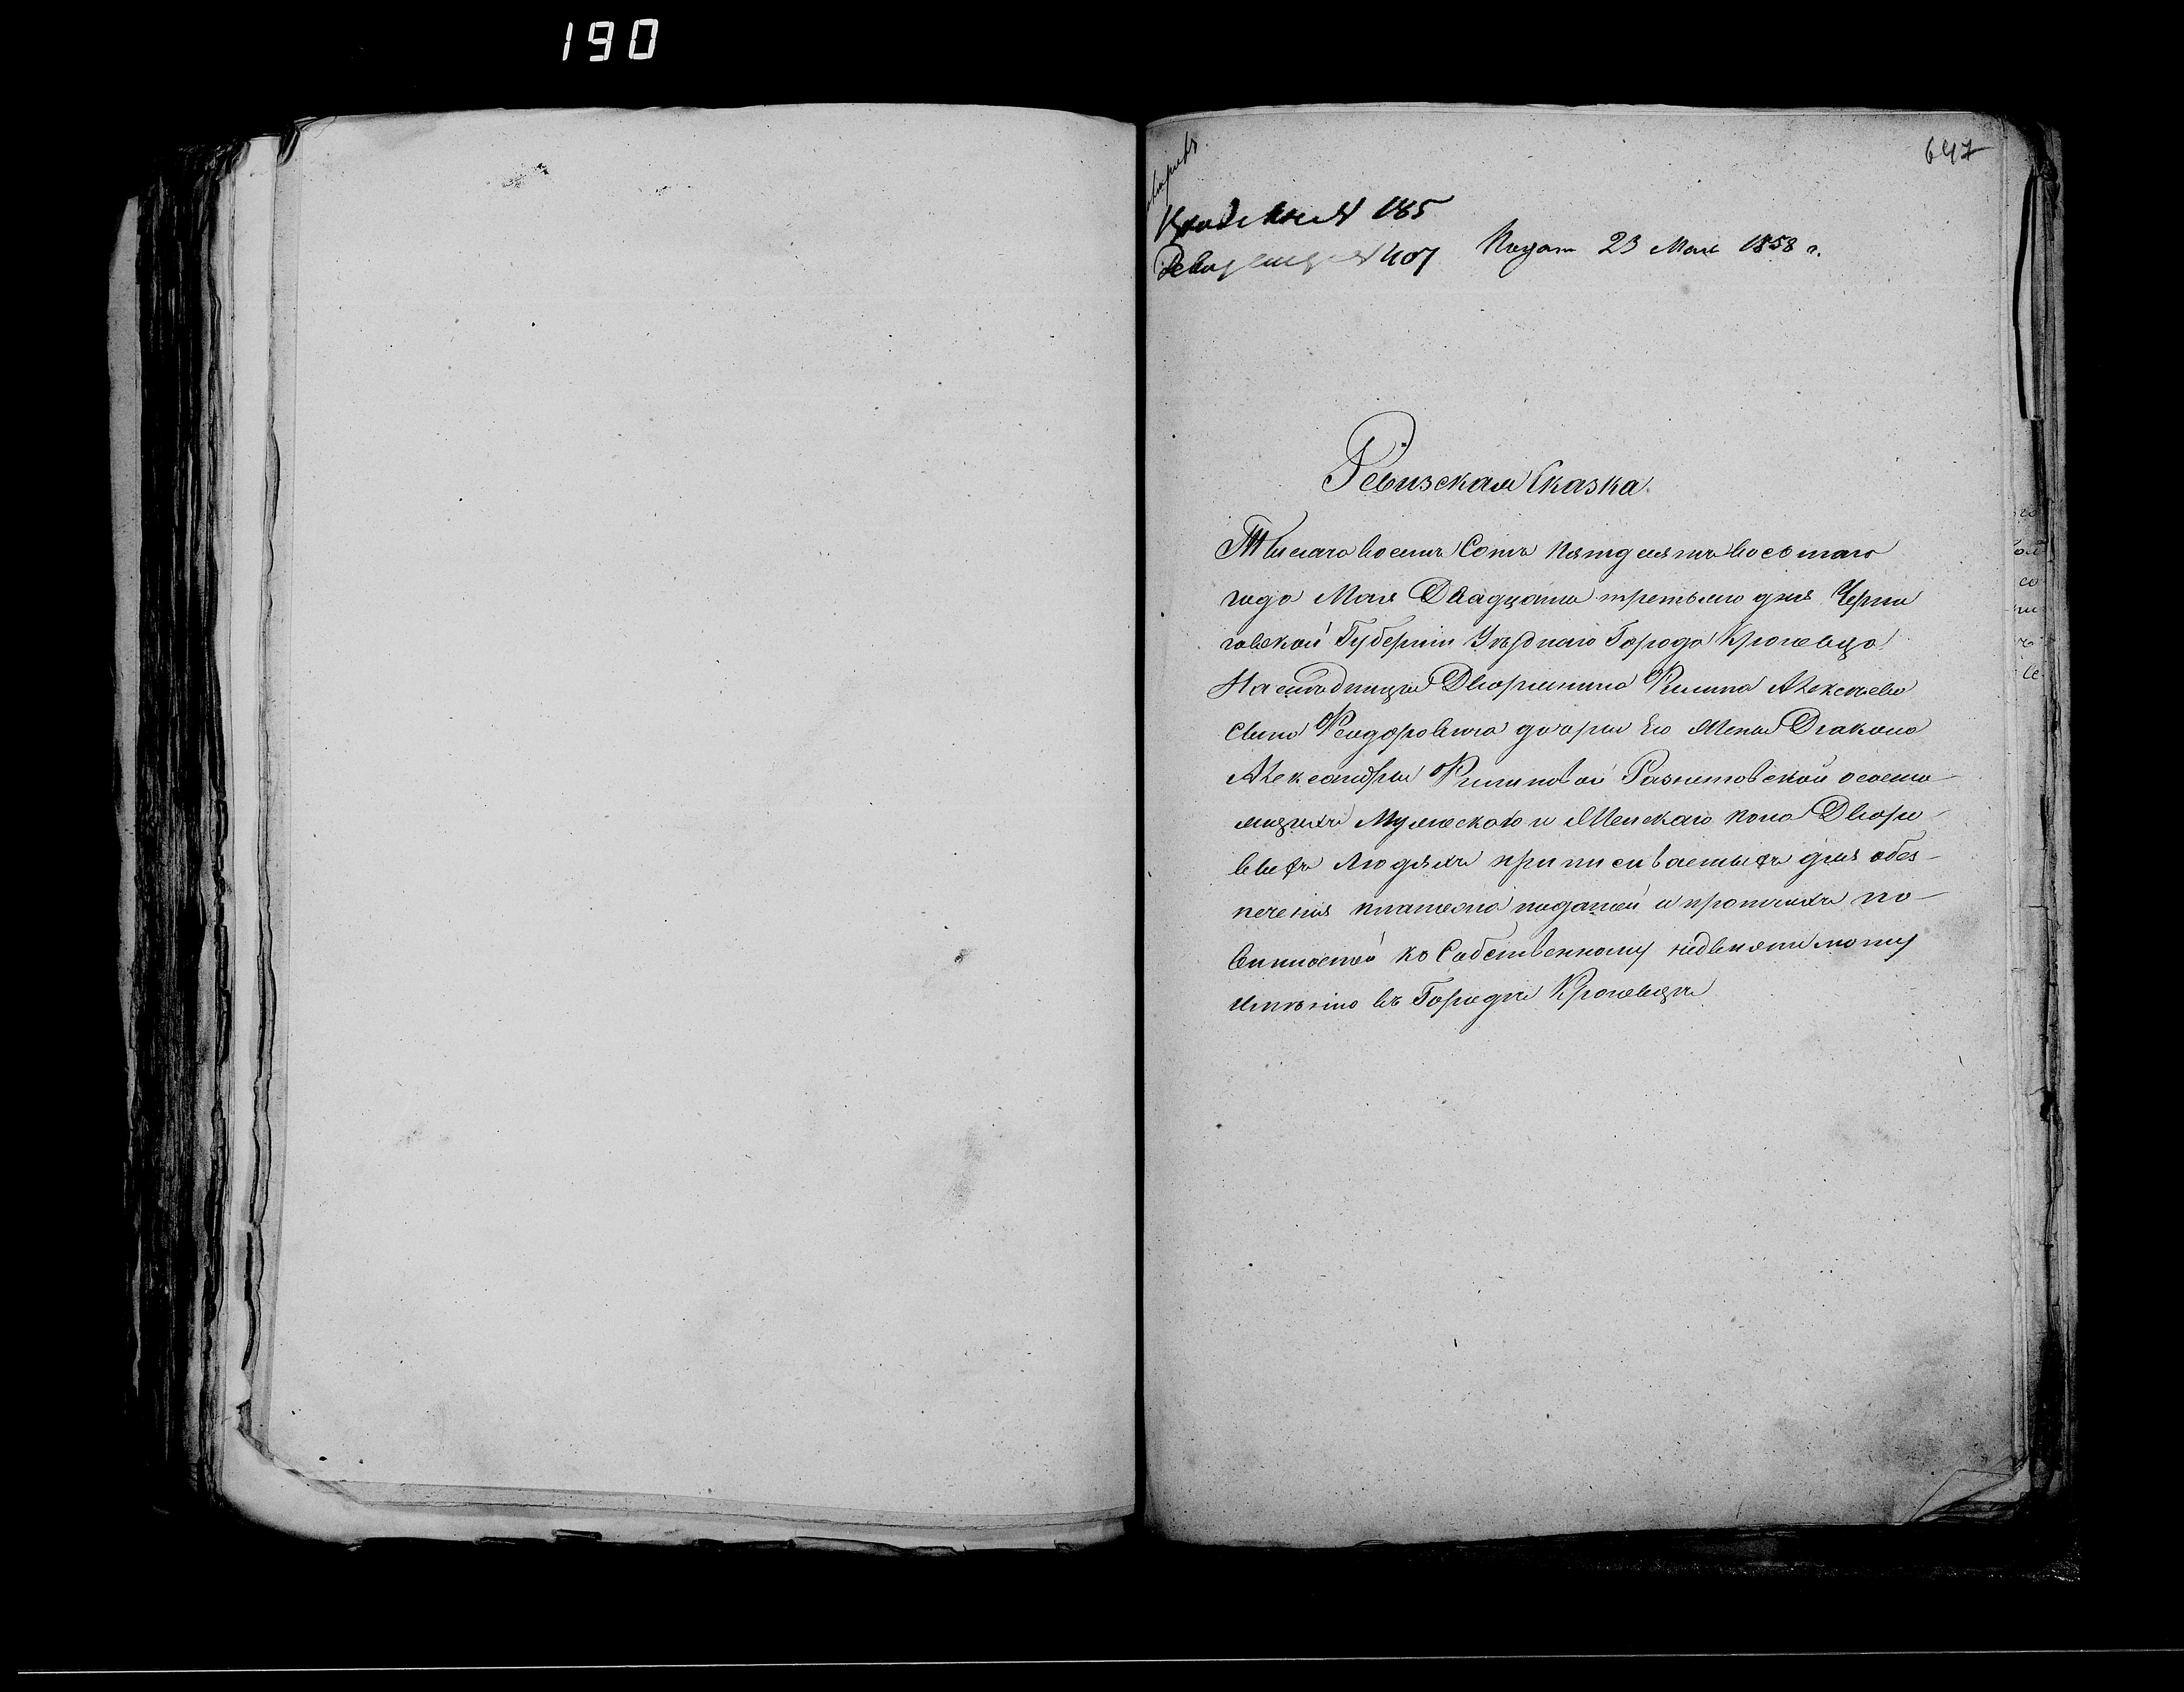 190
647
№ 185
№ 407 Подан 23 Мая 1858 г.
Ревизская Сказка
Тысяча восемь Сотъ пятдесятъ восьмаго
года Мая Двадцать третьего дня Черни
говской Губернии Уезднаго Города Кролевца
Наследницы Дворянина Филипа Алексеева
сына Федоровича дочери Его Жены Диакона
Александры Филиповой осостоя
ящихъ Мужескаго и Женскаго пола Дворо
выхъ людяхъ приписиваемыхъ для обез
печения платежа податей и протчихъ по
винностей ко Собственному недвижимому
имѣнию въ Городѣ Кролевцѣ